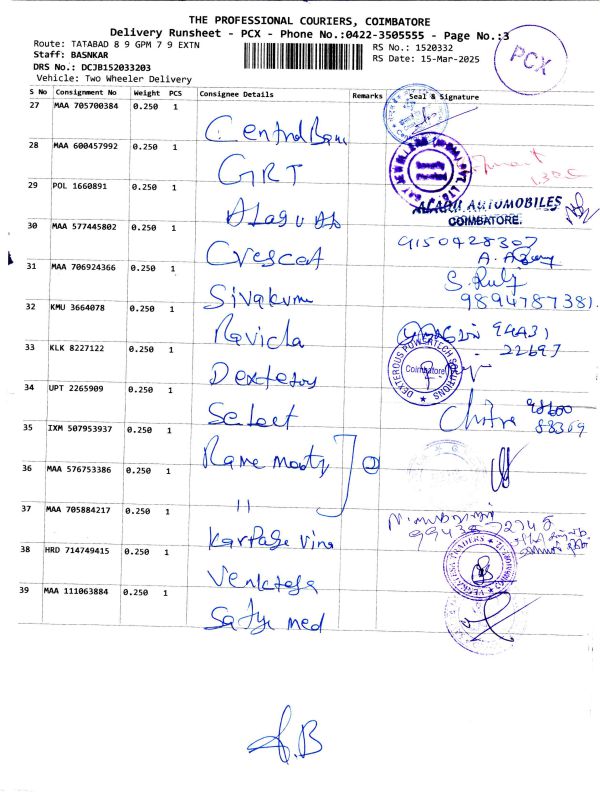 THE PROFESSIONAL COURIERS, COIMBATORE
Delivery Runsheet - PCX - Phone No.:0422-3505555 - Page No.:3
Route: TATABAD 8 9 GPM 7 9 EXTN
Staff: BASNKAR
RS No.: 1520332
DRS No.: DCJB152033203
RS Date: 15-Mar-2025
Vehicle: Two Wheeler Delivery
PCX
S No Consignment No Weight PCS Consignee Details Remarks Seal & Signature
27 MAA 705700384 0.250 1 Central Bank
28 MAA 600457992 0.250 1 GRT
29 POL 1660891 0.250 1 Alagu Ab
ALAGU AUTOMOBILES
COIMBATORE.
30 MAA 577445802 0.250 1 Crescent 9150428307
31 MAA 706924366 0.250 1 Sivakumr 9894787381.
32 KMU 3664078 0.250 1 Ravicla 94431
22697
33 KLK 8227122 0.250 1 Dexterous
DEXTEROUS POWERTECH SOLUTIONS
Coimbatore
34 UPT 2265909 0.250 1 Select Chitra 98600
88369
35 IXM 507953937 0.250 1 Rane moorty ②
36 MAA 576753386 0.250 1 "
37 MAA 705884217 0.250 1 Karpage vina
38 HRD 714749415 0.250 1 Venktesa
39 MAA 111063884 0.250 1 Satye med
A.B